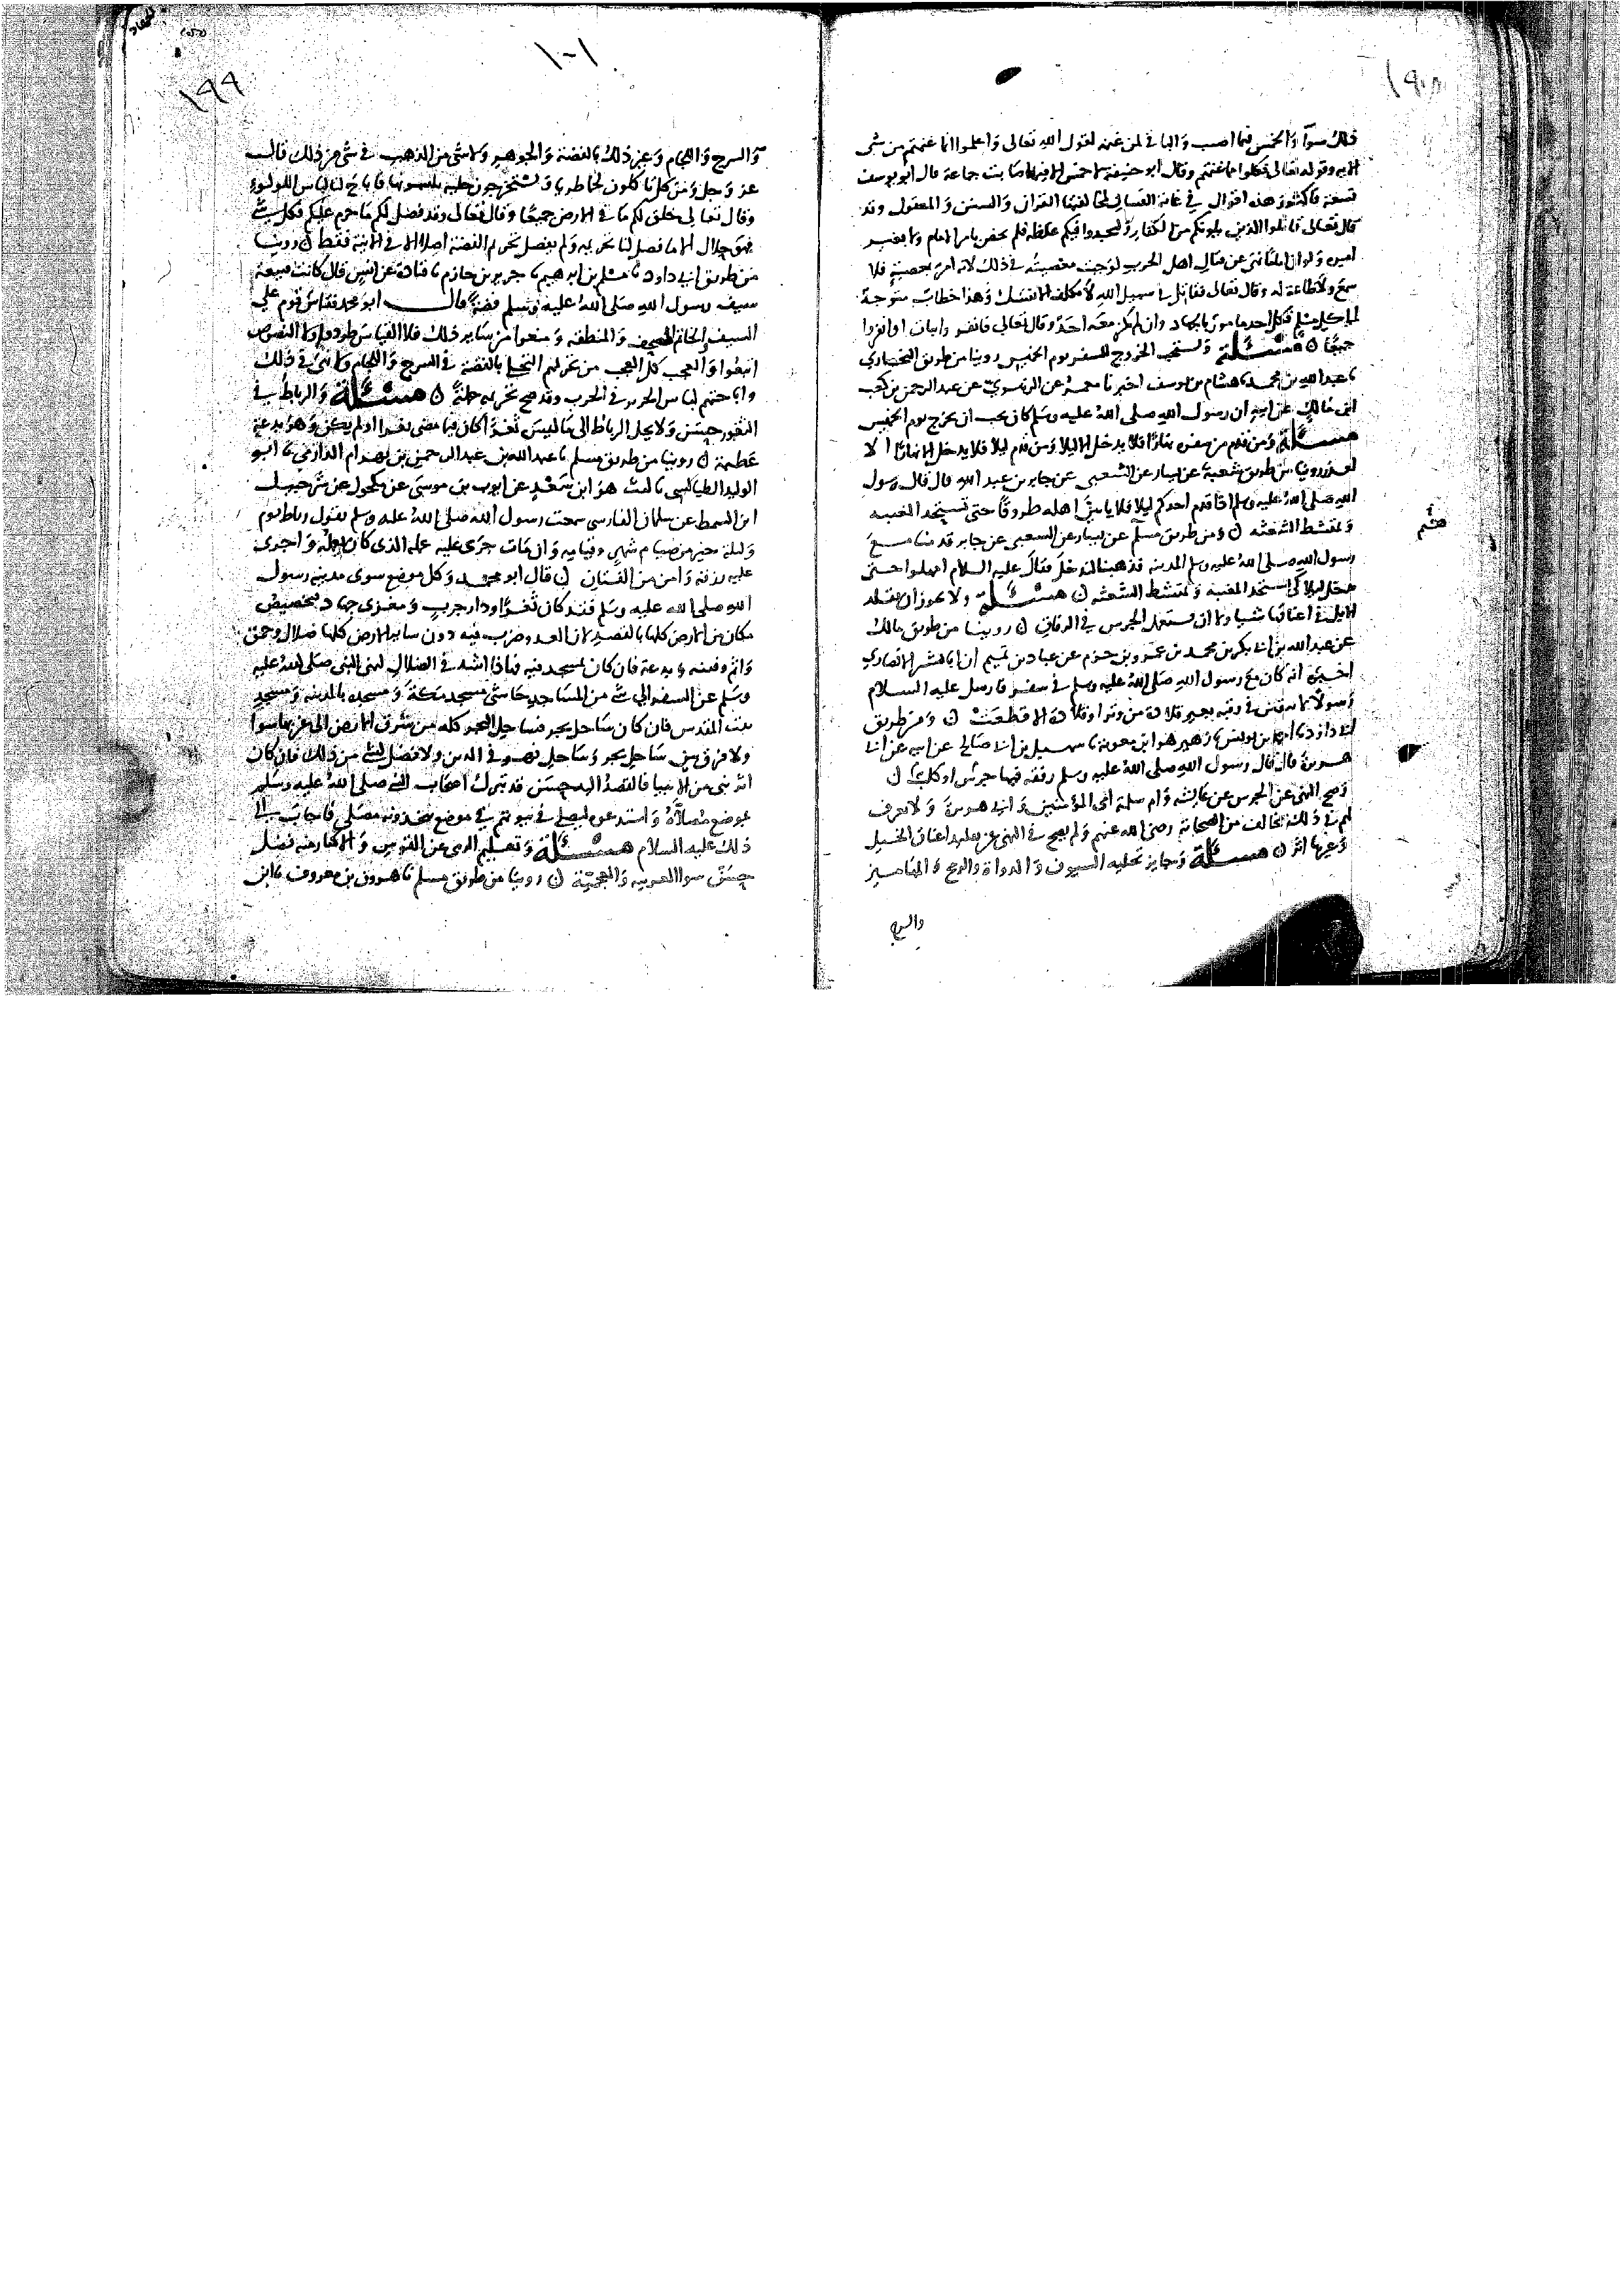 ١٩٨
ذلك سواء والخمس فيما اصيب والباقي لمن غنمه لقول الله تعالى واعلموا انما غنمتم من شي
الاية وقوله تعالى فكلوا مما غنمتم وقال ابو حنيفة لا خمس الا فيما اصابت جماعة قال ابو يوسف
تسعة فاكثر وهذه اقوال في غاية الفساد لخلافها القران والسنن والمعقول وقد
قال تعالى قاتلوا الذين يلونكم من الكفار وليجدوا فيكم غلظة فلم يخص بامر الامام ولا بغير
اميره ولو ان امامًا نهى عن قتال اهل الحرب لوجبت معصيته في ذلك لانه امر بمعصية فلا
سمع ولا طاعة له وقال تعالى فقاتل في سبيل الله لا تكلف الا نفسك وهذا خطاب متوجه
الى كل مسلم فكل احد مامور بالجهاد وان لم يكن معه احد وقال تعالى فانفروا ثبات او انفروا
جميعا ن مسئلة ويستحب الخروج للسفر يوم الخميس روينا من طريق البخاري
نا عبد الله بن محمد نا هشام بن يوسف اخبرنا معمر عن الزهري عن عبد الرحمن بن كعب
ابن مالك عن ابيه ان رسول الله صلى الله عليه وسلم كان يحب ان يخرج يوم الخميس
مسئلة ومن قدم من سفر نهارًا فلا يدخل الا ليلا ومن قدم ليلا فلا يدخل الا نهارًا الا
لعذر روينا من طريق شعبة عن سيار عن الشعبي عن جابر بن عبد الله قال قال رسول
الله صلى الله عليه وسلم اذا قدم احدكم ليلا فلا ياتين اهله طروقًا حتى تستحد المغيبة
وتمتشط الشعثة ن ومن طريق مسلم عن سيار عن الشعبي عن جابر قدمنا مع
هشيم
رسول الله صلى الله عليه وسلم المدينة فذهبنا لندخل فقال عليه السلام امهلوا حتى
ندخل ليلا كي تستحد المغيبة وتمتشط الشعثة ن مسئلة ولا يجوز ان تقلد
الابل في اعناقها شيا ولا ان يستعمل الجرس في الرفاق ن روينا من طريق مالك
عن عبد الله بن ابي بكر بن محمد بن عمرو بن حزم عن عباد بن تميم ان ابا بشير الانصاري
اخبره انه كان مع رسول الله صلى الله عليه وسلم في سفر فارسل عليه السلام
رسولا لا يبقين في رقبة بعير قلادة من وتر او قلادة الا قطعت ن ومن طريق
ابي داود نا احمد بن يونس نا زهير هو ابن معوية نا سهيل بن ابي صالح عن ابيه عن ابي
هريرة قال قال رسول الله صلى الله عليه وسلم رفقة فيها جرس او كلب ن
وصح النهي عن الجرس عن عايشة وام سلمة امي المؤمنين وابي هريرة ولا يعرف
لهم في ذلك مخالف من الصحابة رضي الله عنهم ولم يصح في النهي عن تقليد اعناق الخيل
وغيرها اثر ن مسئلة وجايز تحلية السيوف والدواة والرمح والمهاميز
والسرج
١٠١
١٩٩
والسرج واللجام وغير ذلك بالفضة والجوهر ولا شي من الذهب في شي من ذلك قال
عز وجل ومن كل تاكلون لحما طريا وتستخرجون حلية تلبسونها فاباح لنا لباس اللولوء
وقال تعالى خلق لكم ما في الارض جميعا وقال تعالى وقد فصل لكم ما حرم عليكم فكل شي
فهو حلال الا ما فصل لنا تحريمه ولم يفصل تحريم الفضة اصلا الا في الانية فقط ن روينا
من طريق ابي داود نا مسلم بن ابرهيم نا جرير بن حازم نا قتادة عن انس قال كانت قبيعة
سيف رسول الله صلى الله عليه وسلم فضة قال ابو محمد فقاس قوم على
السيف والخاتم المصحف والمنطقة ومنعوا من ساير ذلك فلا القياس طردوا ولا النصوص
اتبعوا والعجب كل العجب من تحريمهم التحلي بالفضة في السرج واللجام ولا نهي في ذلك
واباحتهم لباس الحرير في الحرب وقد صح تحريمه جملة ن مسئلة والرباط في
الثغور حسن ولا يحل الرباط الى ما ليس ثغرًا كان فيما مضى ثغرا او لم يكن وهو بدعة
عظيمة ن روينا من طريق مسلم نا عبد الله بن عبد الرحمن بن بهرام الدارمي نا ابو
الوليد الطيالسي نا ليث هو ابن سعد عن ايوب بن موسى عن مكحول عن شرحبيل
ابن السمط عن سلمان الفارسي سمعت رسول الله صلى الله عليه وسلم يقول رباط يوم
وليلة خير من صيام شهر وقيامه وان مات جرى عليه عمله الذي كان يعمله واجري
عليه رزقه وامن من الفتان ن قال ابو محمد وكل موضع سوى مدينة رسول
الله صلى الله عليه وسلم فقد كان ثغرًا ودار حرب ومغزى جهاد فتخصيص
مكان من الارض كلها بالقصد لان العدو ضرب فيه دون ساير الارض كلها ضلال وحمق
واثم وفتنة وبدعة فان كان لمسجد فيه فهذا اشد في الضلال لنهي النبي صلى الله عليه
وسلم عن السفر الى شي من المساجد حاشى مسجد مكة ومسجده بالمدينة ومسجد
بيت المقدس فان كان ساحل بحر فساحل البحر كله من شرق الارض الى غربها سوا
ولا فرق بين ساحل بحر وساحل نهر في الدين ولا فضل لشي من ذلك فان كان
اثر نبي من الانبيا فالقصد اليه حسن قد تبرك اصحاب النبي صلى الله عليه وسلم
بموضع مصلاه واستدعوه ليصلي في بيوتهم في موضع يتخذونه مصلى فاجاب الى
ذلك عليه السلام مسئلة وتعليم الرمي عن القوس والاكثار منه فضل
حسن سوا العربية والعجمية ن روينا من طريق مسلم نا هرون بن معروف نا ابن